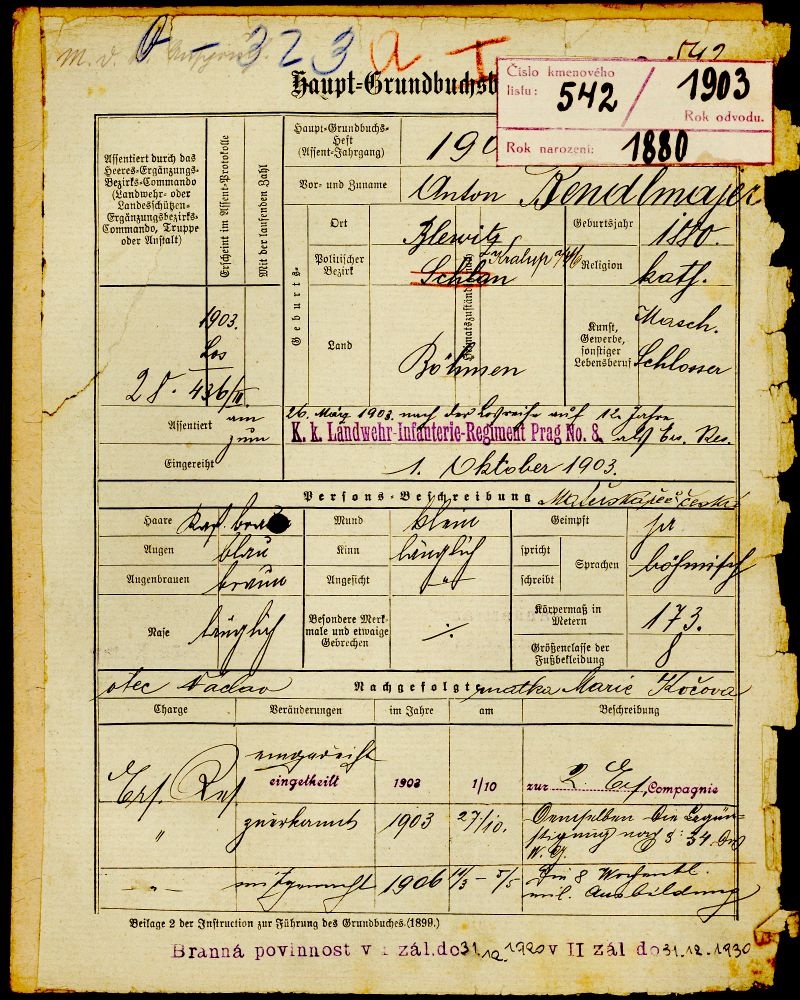 0 - 323 a I
542
Haupt-Grundbuchsb
Číslo kmenového
listu: 542 / 1903
Rok odvodu.
Rok narození: 1880
Assentiert durch das
Heeres-Ergänzungs-
Bezirks-Commando
(Landwehr- oder
Landesschützen-
Ergänzungsbezirks-
Commando, Truppe
oder Anstalt)
Erscheint im Assent-Protokolle
Mit der laufenden Zahl
Haupt-Grundbuchs-
Heft
(Assent-Jahrgang)
190
Vor- und Zuname
Anton Bendlmajer
Geburts-
Ort
Zlewitz
Geburtsjahr
1880.
Politischer
Bezirk
Schlan
Kralup
Religion
kath.
Land
Böhmen
Heimatszuständig
Kunst,
Gewerbe,
sonstiger
Lebensberuf
Masch.
Schlosser
1903.
Los
28. 436/II.
Assentiert
am
zum
26. März 1903 nach der Losreihe auf 12 Jahre
K. k. Landwehr-Infanterie-Regiment Prag No. 8. als Ers. Res.
Eingereiht
1. Oktober 1903.
Persons-Beschreibung
Haare
braun
Mund
klein
Geimpft
ja
Augen
blau
Kinn
länglich
spricht
schreibt
Sprachen
böhmisch
Augenbrauen
braun
Angesicht
"
Nase
länglich
Besondere Merk-
male und etwaige
Gebrechen
./.
Körpermaß in
Metern
173.
Größenclasse der
Fußbekleidung
8
otec Václav
Nachgefolgte
matka Marie Kočova
Charge
Veränderungen
im Jahre
am
Beschreibung
Ers. Res.
eingereiht
eingetheilt
1903
1/10
zur 2. Ers. Compagnie
"
zuerkannt
1903
27/10.
Demselben die Begün-
stigung nach §: 34. des
W. G.
- " -
mitgemacht
1906
11/3 - 5/5
Die 8 Wochentl.
mil. Ausbildung
Beilage 2 der Instruction zur Führung des Grundbuches. (1899.)
Branná povinnost v I zál. do 31. 12. 1920 v II zál do 31. 12. 1930